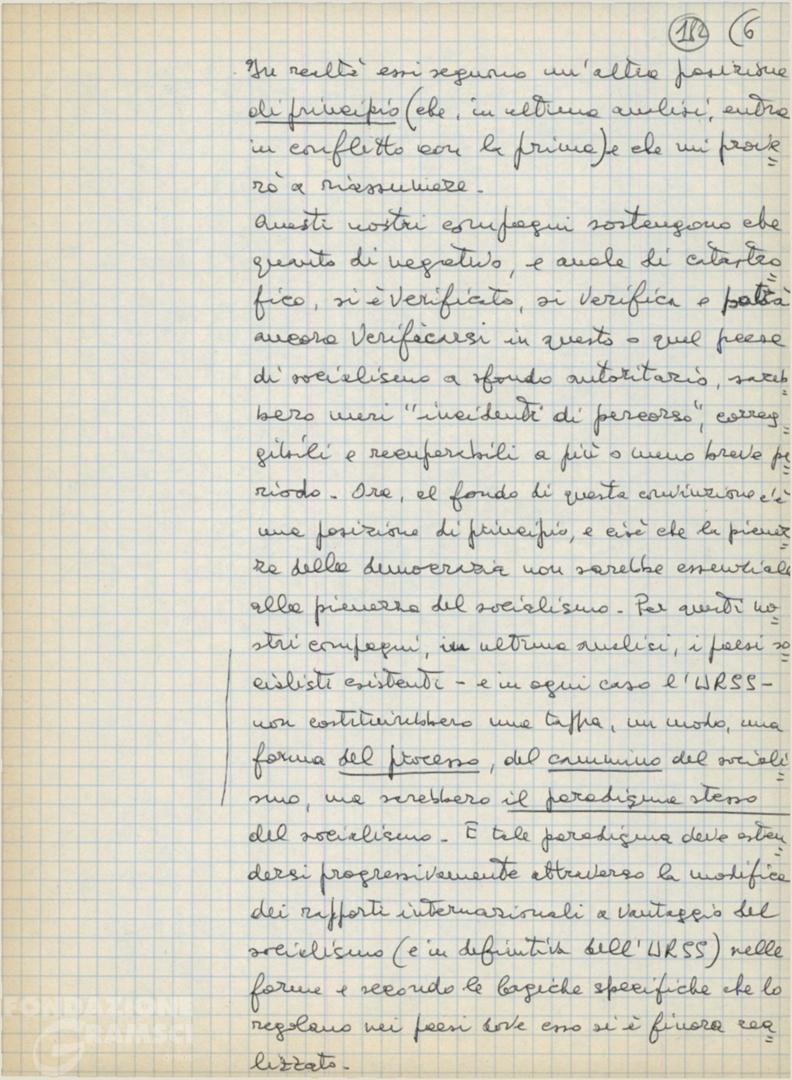 182 (6
In realtà essi seguono un'altra posizione
di principio (che, in ultima analisi, entra
in conflitto con la prima) e che mi prove=
rò a riassumere.
Questi nostri compagni sostengono che
quanto di negativo, e anche di catastro=
fico, si è verificato, si verifica e potrà
ancora verificarsi in questo o quel paese
di socialismo a sfondo autoritario, sareb=
bero meri "incidenti di percorso", correg=
gibili e recuperabili a più o meno breve pe=
riodo. Ora, al fondo di questa convinzione c'è
una posizione di principio, e cioè che la pienez=
za della democrazia non sarebbe essenziale
alla pienezza del socialismo. Per questi no=
stri compagni, in ultima analisi, i paesi so=
cialisti esistenti - e in ogni caso l'URSS -
non costituirebbero una tappa, un modo, una
forma del processo, del cammino del sociali=
smo, ma sarebbero il paradigma stesso
del socialismo. E tale paradigma deve esten=
dersi progressivamente attraverso la modifica
dei rapporti internazionali a vantaggio del
socialismo (e in definitiva dell'URSS) nelle
forme e secondo le logiche specifiche che lo
regolano nei paesi dove esso si è finora rea=
lizzato.
FONDAZIONE
GRAMSCI